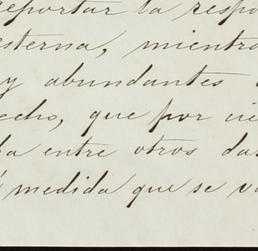 reportar la respo
esterna, mientra
y abundantes
echo, que por
ba entre otros da
á medida que se va